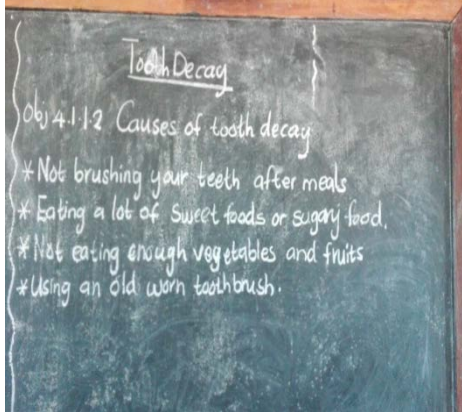 Tooth Decay
Obj 4.1.1.2 Causes of tooth decay
* Not brushing your teeth after meals
* Eating a lot of sweet foods or sugary food.
* Not eating enough vegetables and fruits
* Using an old worn toothbrush.